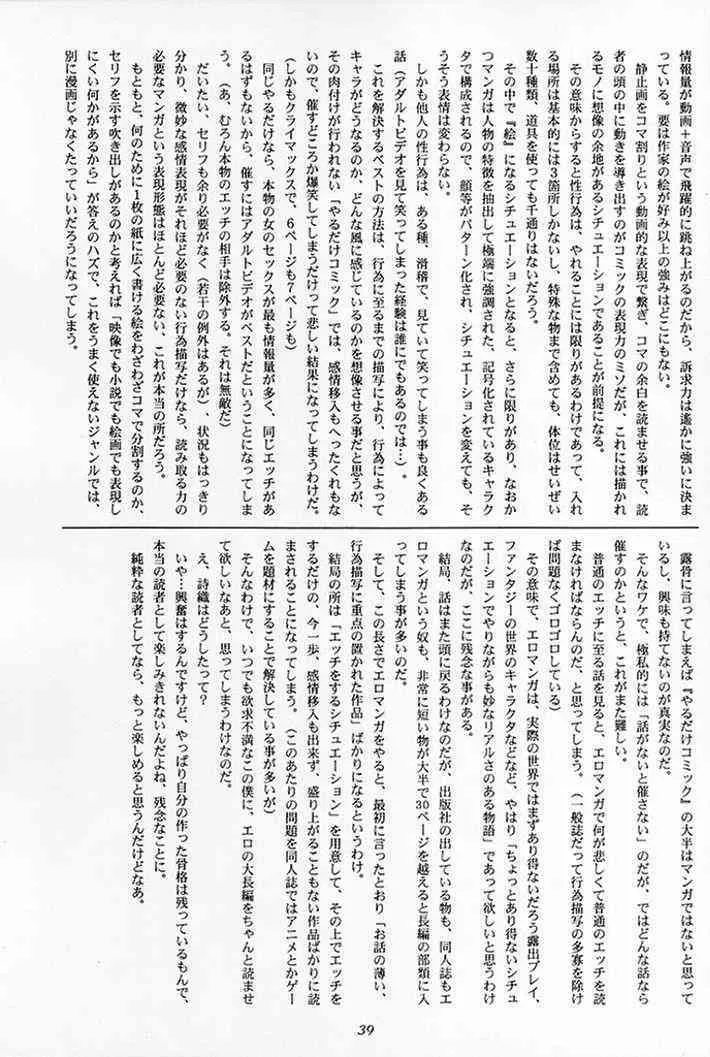 情報量が動画+音声で飛躍的に跳ね上がるのだから、訴求力は遥かに強いに決ま
っている。要は作家の絵が好み以上の強みはどこにもない。
静止画をコマ割りという動画的な表現で繋ぎ、コマの余白を読ませる事で、読
者の頭の中に動きを導き出すのがコミックの表現力のミソだが、これには描かれ
るモノに想像の余地があるシチュエーションであることが前提になる。
その意味からすると性行為は、やれることには限りがあるわけであって、入れ
る場所は基本的には3箇所しかないし、特殊な物まで含めても、体位はせいぜい
数十種類、道具を使っても千通りはないだろう。
その中で『絵』になるシチュエーションとなると、さらに限りがあり、なおか
つマンガは人物の特徴を抽出して極端に強調された、記号化されているキャラク
タで構成されるので、顔等がパターン化され、シチュエーションを変えても、そ
うそう表情は変わらない。
しかも他人の性行為は、ある種、滑稽で、見ていて笑ってしまう事も良くある
話(アダルトビデオを見て笑ってしまった経験は誰にでもあるのでは…)。
これを解決するベストの方法は、行為に至るまでの描写により、行為によって
キャラがどうなるのか、どんな風に感じているのかを想像させる事だと思うが、
その肉付けが行われない「やるだけコミック」では、感情移入もへったくれもな
いので、催すどころか爆笑してしまうだけって悲しい結果になってしまうわけだ。
(しかもクライマックスで、6ページも7ページも)
同じやるだけなら、本物の女のセックスが最も情報量が多く、同じエッチがあ
るはずもないから、催すにはアダルトビデオがベストだということになってしま
う。(あ、むろん本物のエッチの相手は除外する。それは無敵だ)
だいたい、セリフも余り必要がなく(若干の例外はあるが)、状況もはっきり
分かり、微妙な感情表現がそれほど必要のない行為描写だけなら、読み取る力の
必要なマンガという表現形態はほとんど必要ない、これが本当の所だろう。
もともと、何のために1枚の紙に広く書ける絵をわざわざコマで分割するのか、
セリフを示す吹き出しがあるのかと考えれば「映像でも小説でも絵画でも表現し
にくい何かがあるから」が答えのハズで、これをうまく使えないジャンルでは、
別に漫画じゃなくたっていいだろうになってしまう。
露骨に言ってしまえば『やるだけコミック』の大半はマンガではないと思って
いるし、興味も持てないのが真実なのだ。
そんなワケで、極私的には「話がないと催さない」のだが、ではどんな話なら
催すのかというと、これがまた難しい。
普通のエッチに至る話を見ると、エロマンガで何が悲しくて普通のエッチを読
まなければならんのだ、と思ってしまう。(一般誌だって行為描写の多寡を除け
ば問題なくゴロゴロしている)
その意味で、エロマンガは、実際の世界ではまずあり得ないだろう露出プレイ、
ファンタジーの世界のキャラクタなどなど、やはり「ちょっとあり得ないシチュ
エーションでやりながらも妙なリアルさのある物語」であって欲しいと思うわけ
なのだが、ここに残念な事がある。
結局、話はまた頭に戻るわけなのだが、出版社の出している物も、同人誌もエ
ロマンガという奴も、非常に短い物が大半で30ページを越えると長編の部類に入
ってしまう事が多いのだ。
そして、この長さでエロマンガをやると、最初に言ったとおり「お話の薄い、
行為描写に重点の置かれた作品」ばかりになるというわけ。
結局の所は「エッチをするシチュエーション」を用意して、その上でエッチを
するだけの、今一歩、感情移入も出来ず、盛り上がることもない作品ばかりに読
まされることになってしまう。(このあたりの問題を同人誌ではアニメとかゲー
ムを題材にすることで解決している事が多いが)
そんなわけで、いつでも欲求不満なこの僕に、エロの大長編をちゃんと読ませ
て欲しいなあと、思ってしまうわけなのだ。
え、詩織はどうしたって?
いや…興奮はするんですけど、やっぱり自分の作った骨格は残っているもんで、
本当の読者として楽しみきれないんだよね、残念なことに。
純粋な読者としてなら、もっと楽しめると思うんだけどなあ。
39